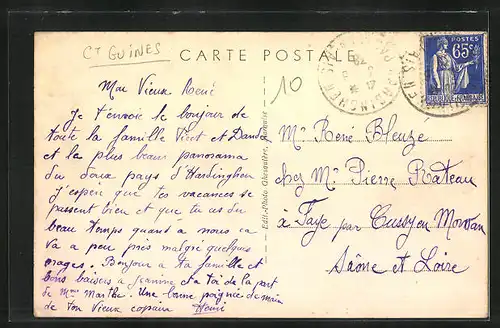 CT GUINES
CARTE POSTALE
POSTES
65c
10
Mon Vieux René
Je t'envoie le bonjour de
toute la famille Viret et Dandre
et la plus beau panorama
du doux pays d'Hardinghen
J'espère que tes vacances se
passent bien et que tu as du
beau temps quand a nous ca
va a peu près malgré quelques
orages. Bonjour a ta famille et
bons baisers a Jeannine et a toi de la part
de Mme Marthe. Une bonne poignée de main
de ton Vieux copain Henri
Edit.-Photo
Mr René Bleuze
chez Mr Pierre Rateau
à Faye par Cussy en Morvan
Saône et Loire